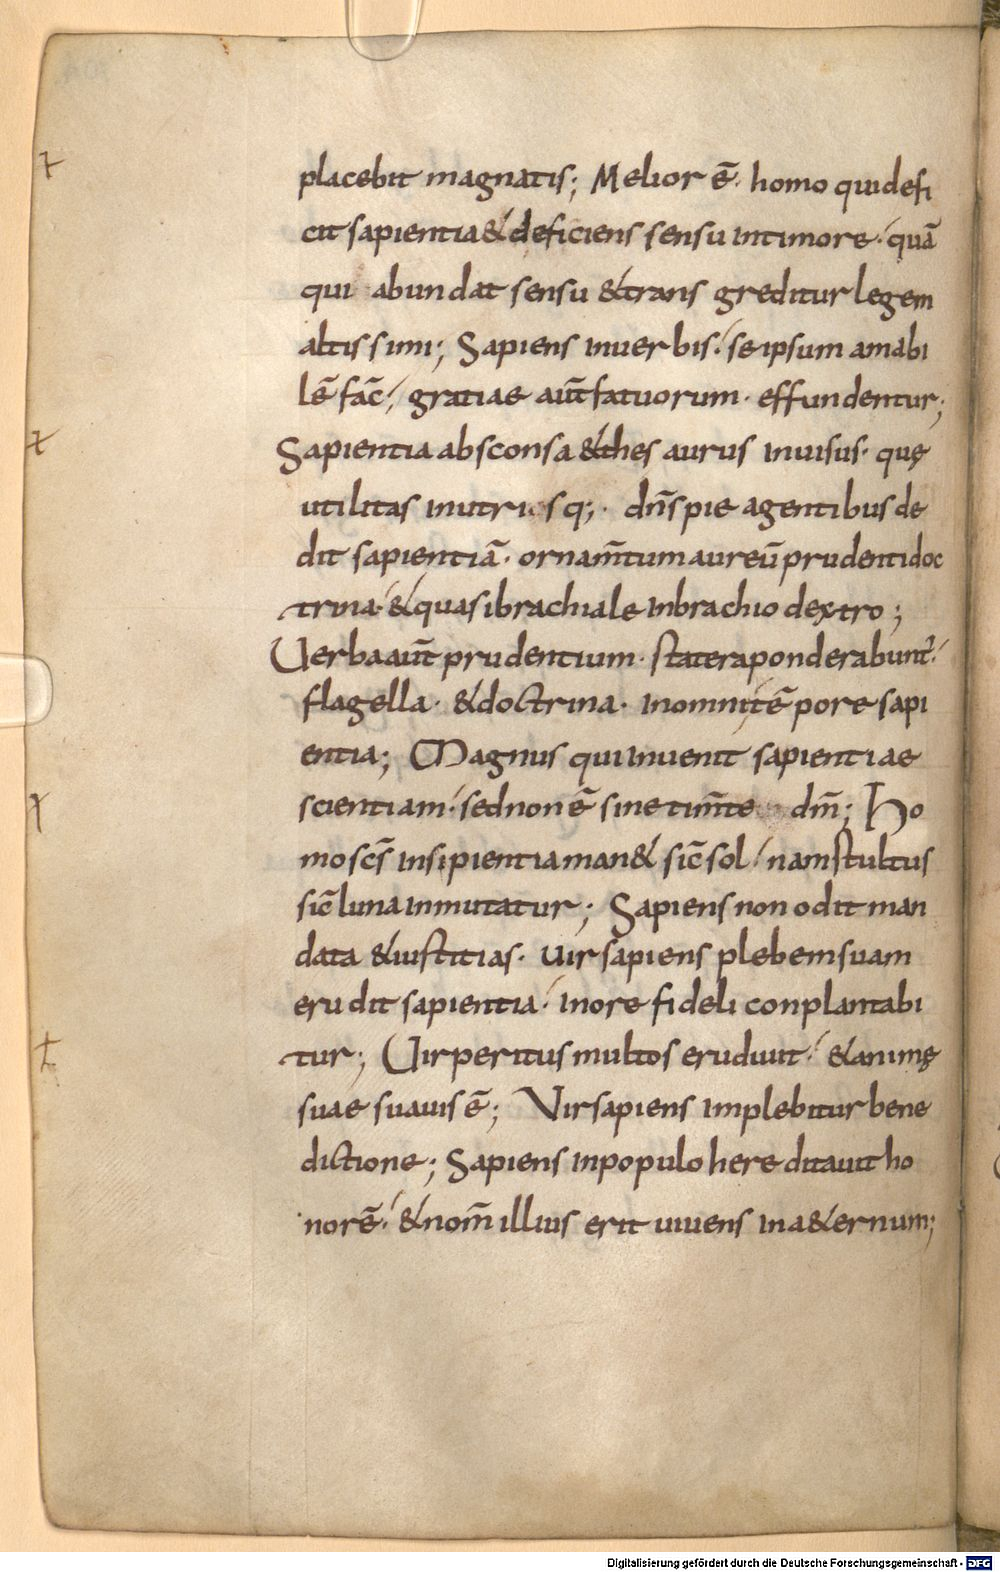 placebit magnatis; Melior ē· homo qui defi
cit sapientia & deficiens sensu in timore· quā
qui abundat sensu & transgreditur legem
altissimi; Sapiens in uerbis· se ipsum amabi
lē fac̄, gratiae aut̄ fatuorum· effundentur;
Sapientia absconsa & thesaurus inuisus· quę
utilitas in utrisq;· dn̄s pie agentibus de
dit sapientiā· ornam̄tum aureū prudenti doc
trina· & quasi brachiale in brachio dextro;
Uerba aut̄ prudentium· statera ponderabunt̄·
flagella· & doctrina· in omni tēpore sapi
entia; Magnus qui inuenit sapientiae
scientiam· sed non ē sine tim̄te dm̄; Ho
mo scs̄ in sipientia man& sic̄ sol· nam stultus
sic̄ luna inmutatur; Sapiens non odit man
data & iustitias· uir sapiens plebem suam
erudit sapientia· in ore fideli conplantabi
tur; Uir peritus multos erudiuit· & animę
suae suauis ē; Vir sapiens implebitur bene
dictione; Sapiens in populo hereditauit ho
norē· & nom̄ illius erit uiuens in a&ernum;
Digitalisierung gefördert durch die Deutsche Forschungsgemeinschaft - DFG